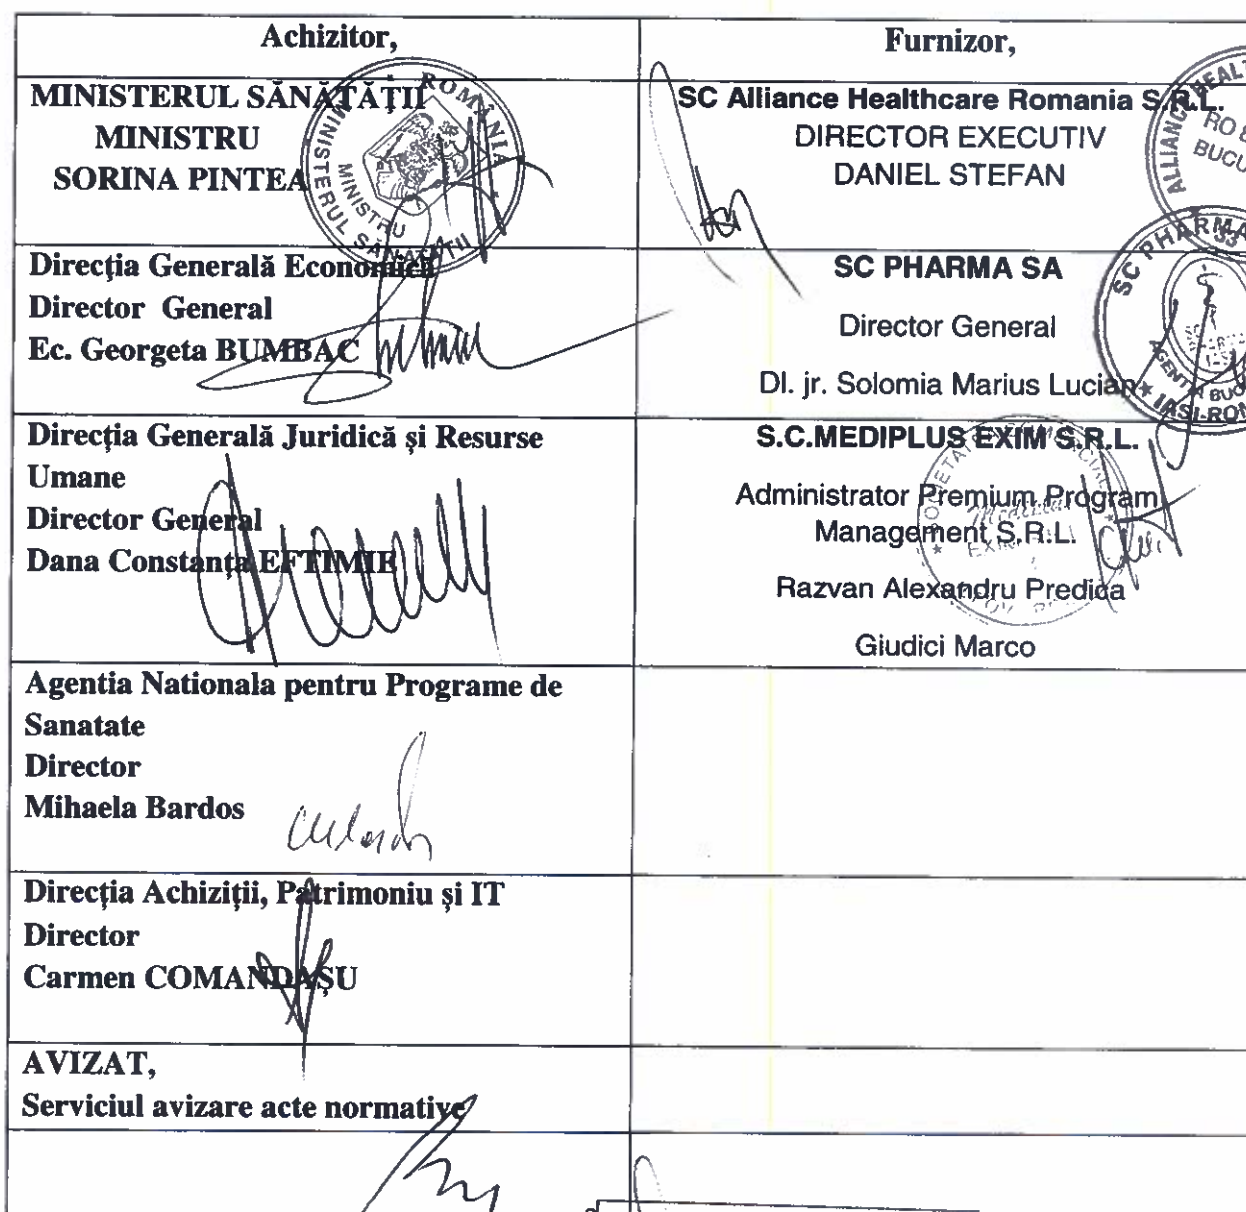 Achizitor,
Furnizor,
MINISTERUL SĂNĂTĂȚII
MINISTRU
SORINA PINTEA
ROMÂNIA
MINISTERUL SĂNĂTĂȚII
MINISTRU
SC Alliance Healthcare Romania S.R.L.
DIRECTOR EXECUTIV
DANIEL STEFAN
ALLIANCE HEALT
RO 8
BUCU
Direcția Generală Economică
Director General
Ec. Georgeta BUMBAC
SC PHARMA SA
Director General
Dl. jr. Solomia Marius Lucian
SC PHARMA
AGENTIA BUC
IASI-ROM
Direcția Generală Juridică și Resurse
Umane
Director General
Dana Constanța EFTIMIE
S.C.MEDIPLUS EXIM S.R.L.
Administrator Premium Program
Management S.R.L.
Razvan Alexandru Predica
Giudici Marco
Agentia Nationala pentru Programe de
Sanatate
Director
Mihaela Bardos
Direcția Achiziții, Patrimoniu și IT
Director
Carmen COMANDAȘU
AVIZAT,
Serviciul avizare acte normative